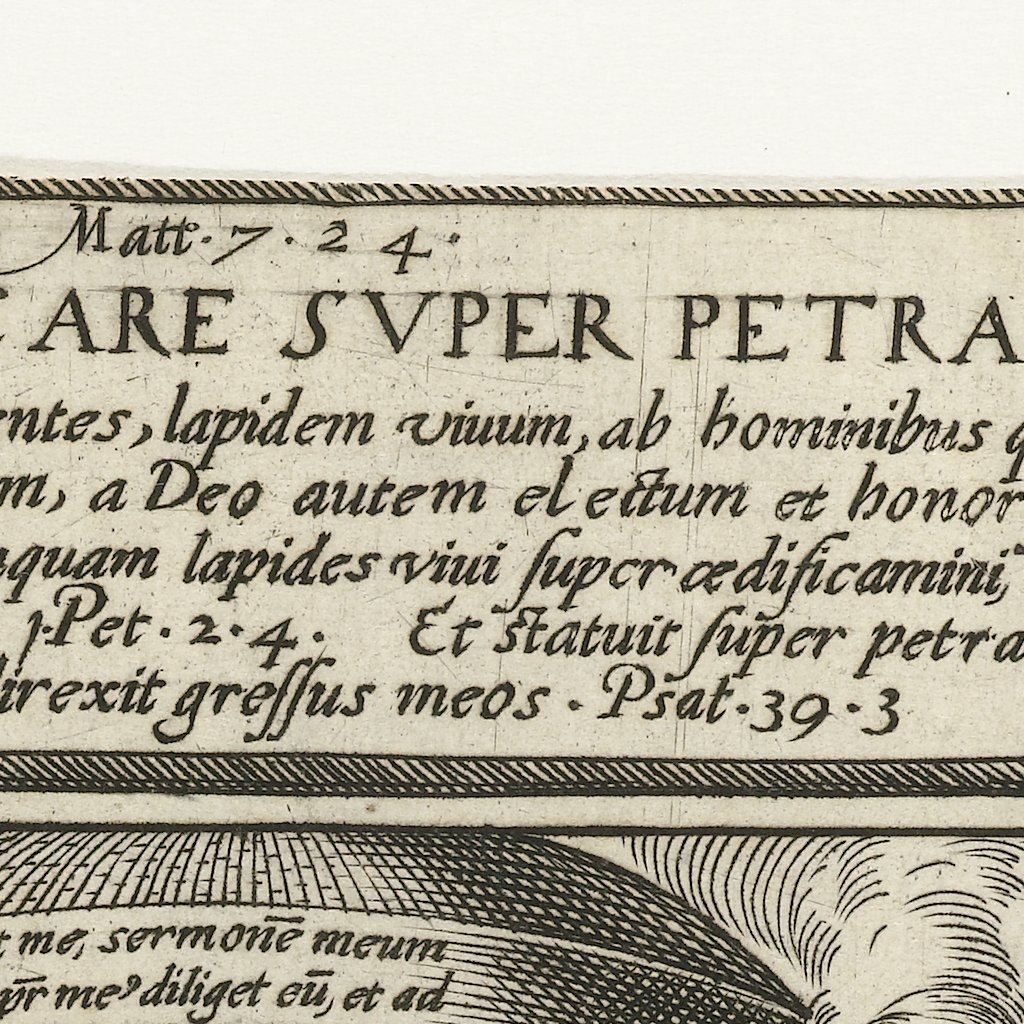 Matt. 7. 24.
ARE SVPER PETRA
entes, lapidem viuum, ab hominibus
m, a Deo autem electum et honor
quam lapides viui super ædificamini,
1. Pet. 2. 4. Et statuit super petra
irexit gressus meos. Psat. 39. 3
me, sermonē meum
pr̄ me⁹ diliget eū, et ad